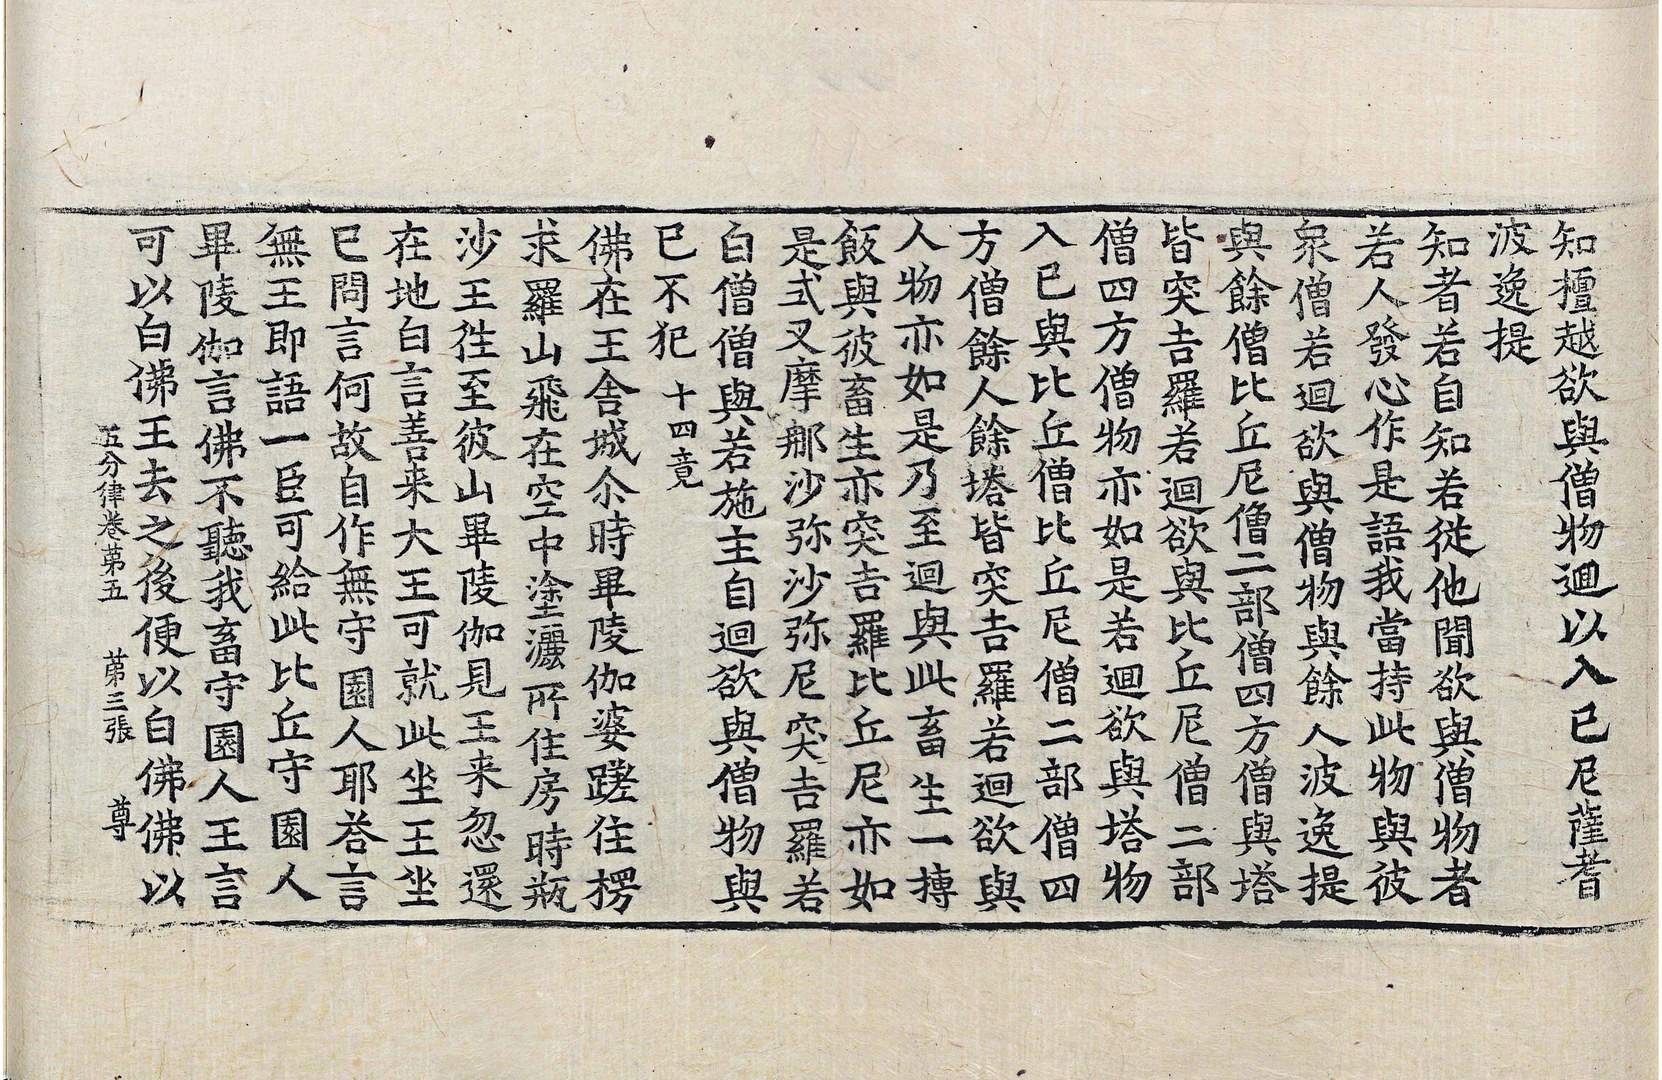 知檀越欲與僧物迴以入已尼薩耆
波逸提
知者若自知若從他聞欲與僧物者
若人發心作是語我當持此物與彼
衆僧若迴欲與僧物與餘人波逸提
與餘僧比丘尼僧二部僧四方僧與塔
皆突吉羅若迴欲與比丘尼僧二部
僧四方僧物亦如是若迴欲與塔物
入已與比丘僧比丘尼僧二部僧四
方僧餘人餘塔皆突吉羅若迴欲與
人物亦如是乃至迴與此畜生一摶
飯與彼畜生亦突吉羅比丘尼亦如
是式叉摩那沙弥沙弥尼突吉羅若
白僧僧與若施主自迴欲與僧物與
已不犯 十四竟
佛在王舍城尒時畢陵伽婆蹉住楞
求羅山飛在空中塗灑所住房時瓶
沙王徃至彼山畢陵伽見王来忽還
在地白言善来大王可就此坐王坐
已問言何故自作無守園人耶荅言
無王即語一臣可給此比丘守園人
畢陵伽言佛不聽我畜守園人王言
可以白佛王去之後便以白佛佛以
五分律卷苐五 苐三張 尊